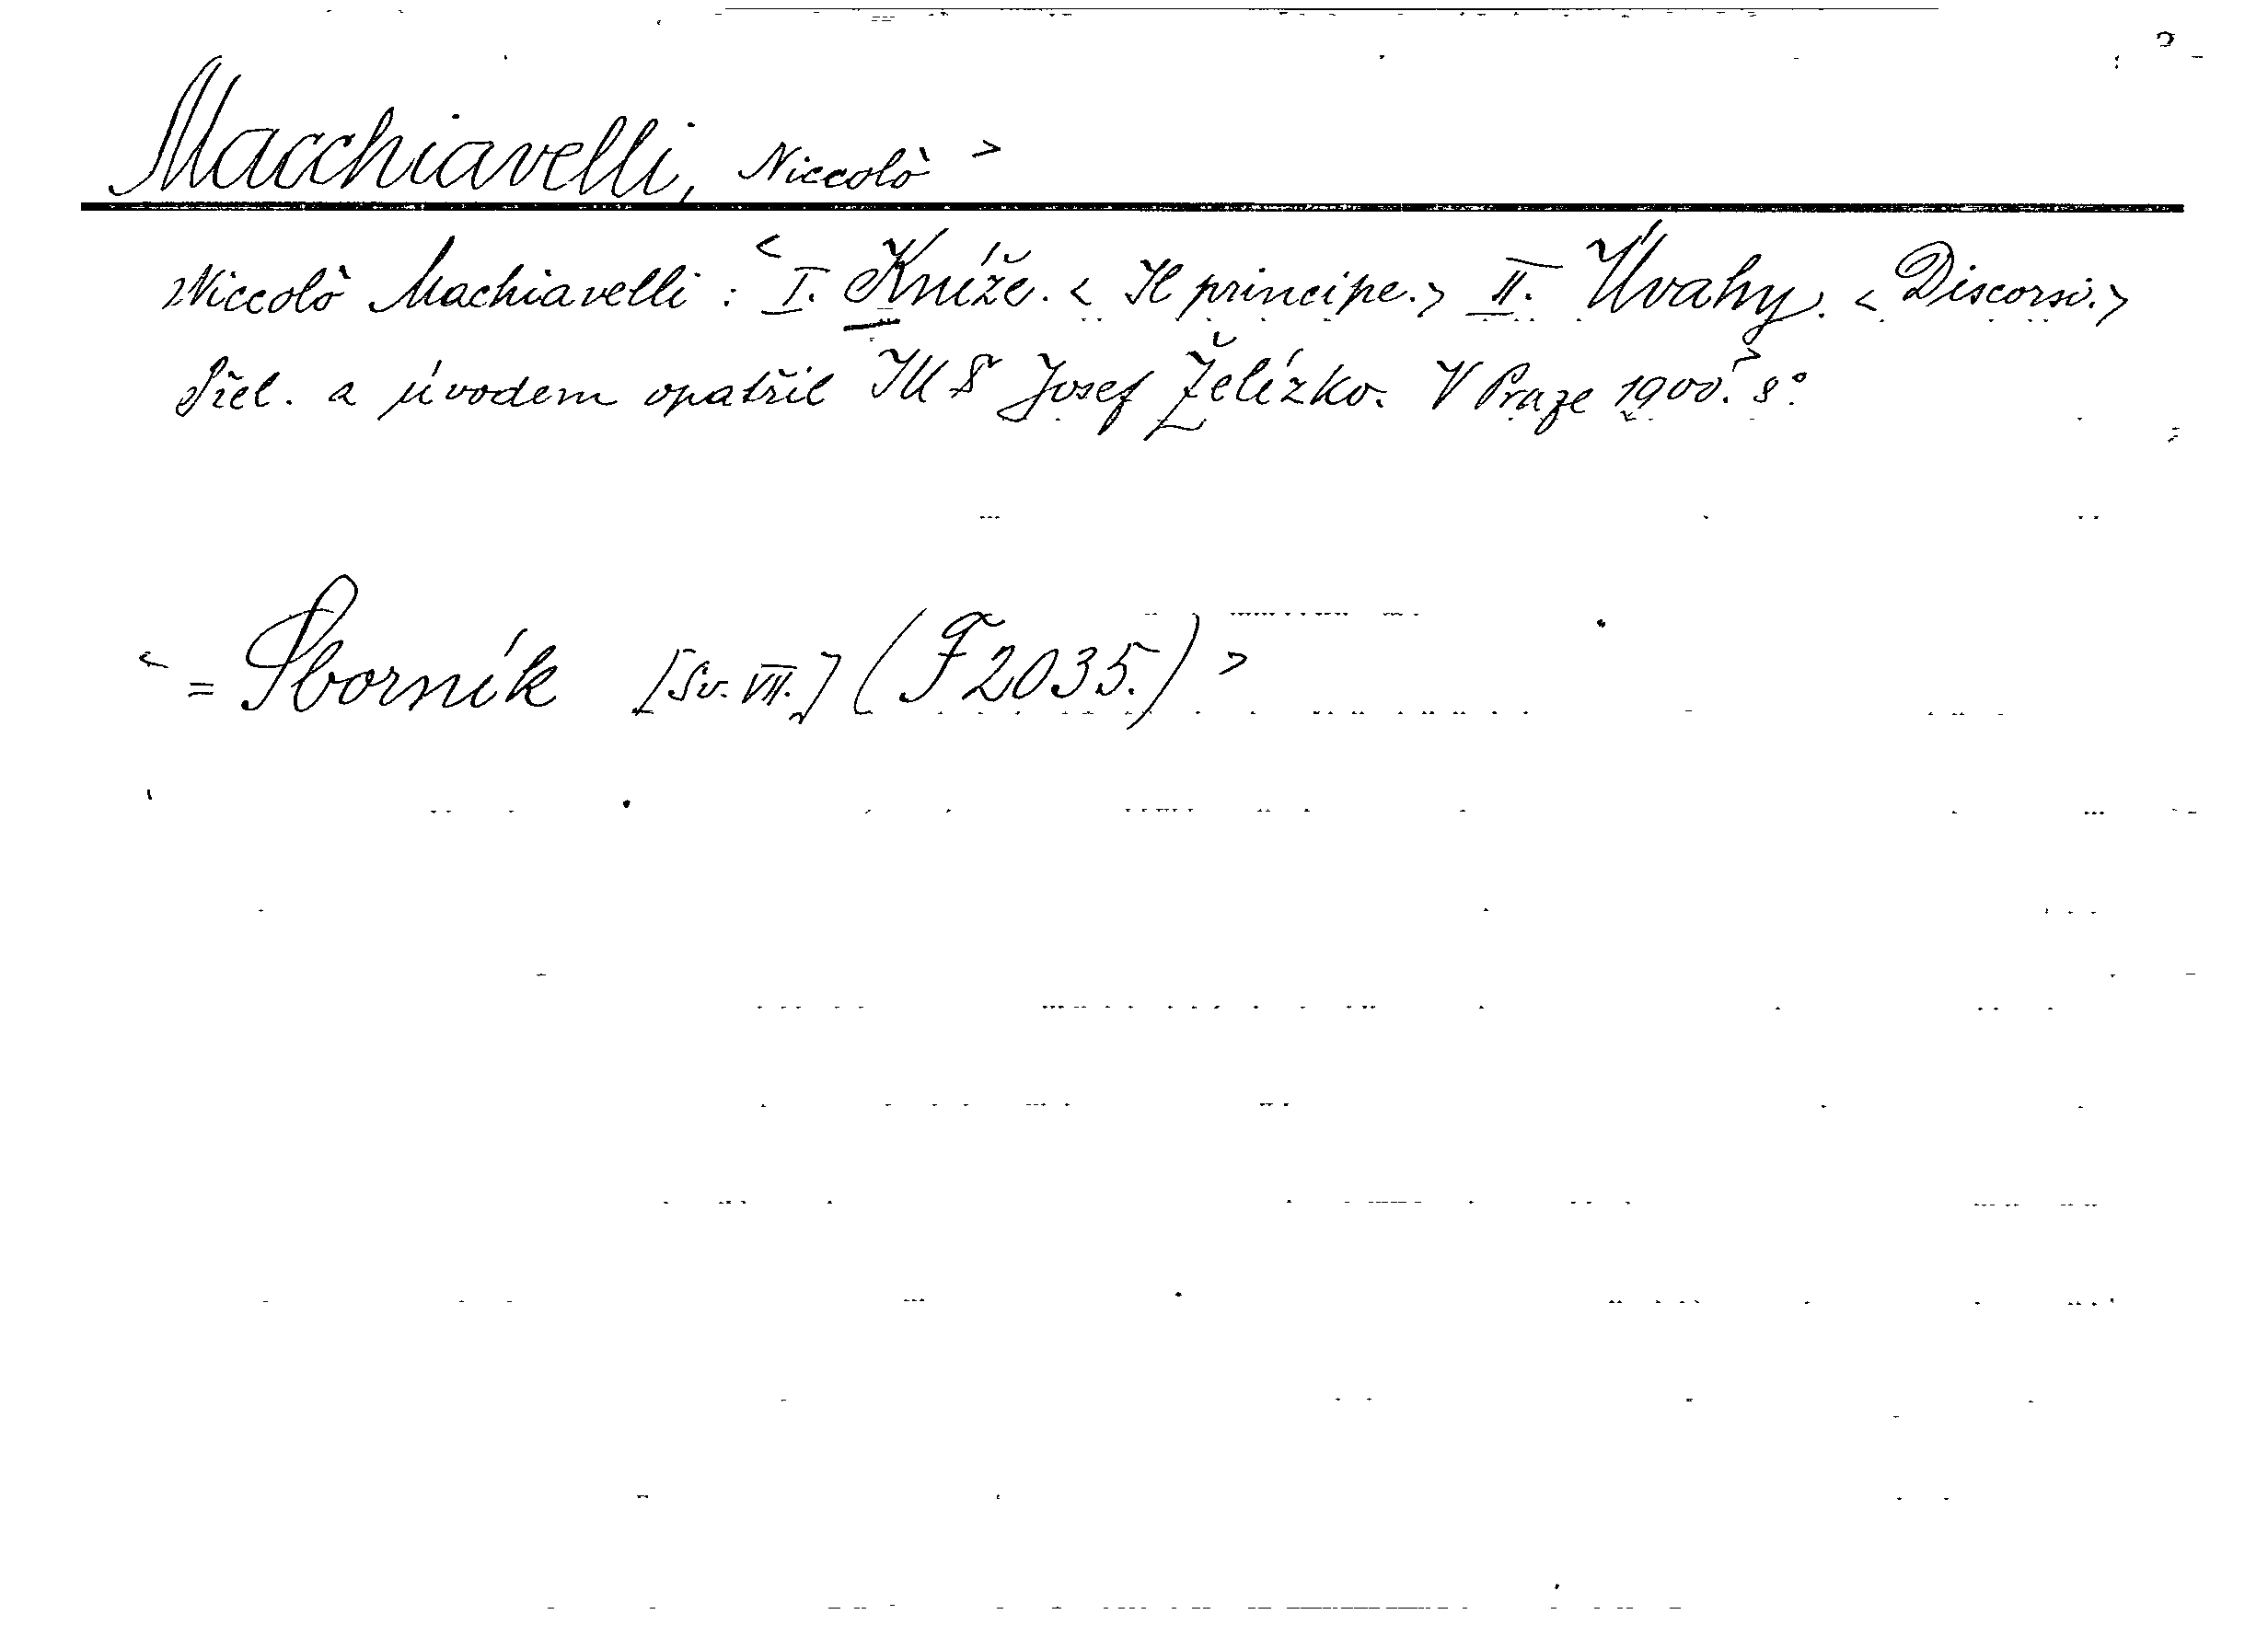 Macchiavelli, Niccolò >
Niccolò Machiavelli : < I. Kníže. < Il principe. > II. Úvahy. < Discorsi. >
Přel. a úvodem opatřil Josef Želízko. V Praze 1900. > 8°.
< = Sborník [Sv. VII.] (F 2035.) >